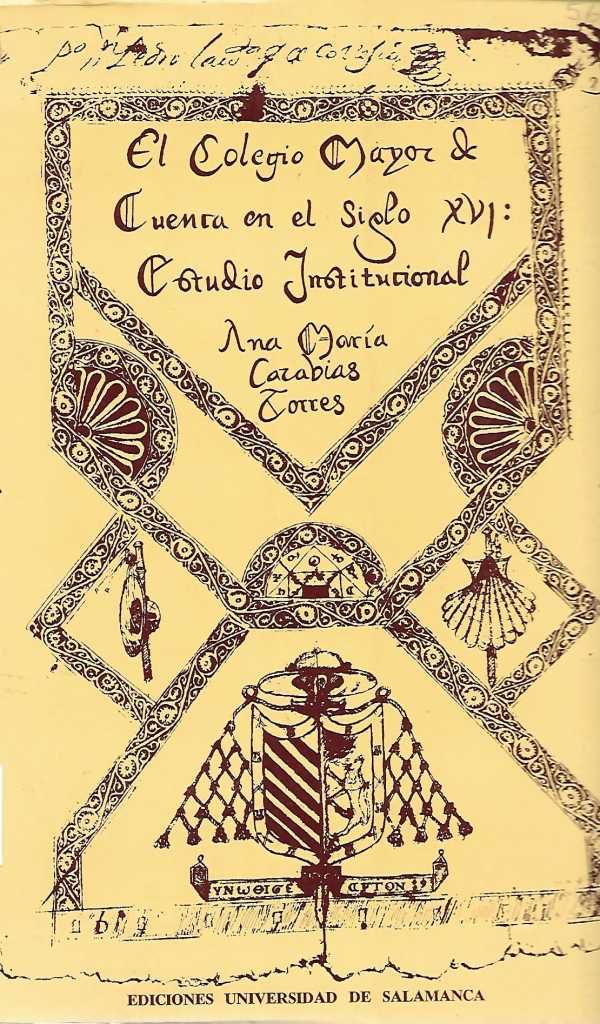 El Colegio Mayor de
Cuenca en el Siglo XVI:
Estudio Institucional
Ana María
Carabias
Torres
ΓΝΩΘΙ ΣΕ ΑΥΤΟΝ
EDICIONES UNIVERSIDAD DE SALAMANCA